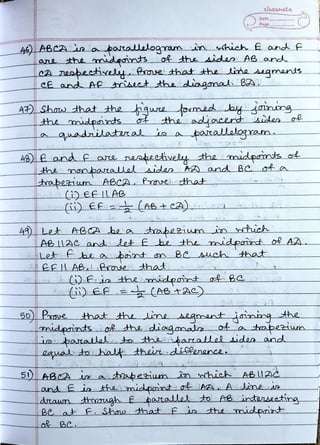 classmate
Date
Page
46) ABCD is a parallelogram in which E and F
are the midpoints of the sides AB and
CD respectively. Prove that the line segments
CE and AF trisect the diagonal BD.
47) Show that the figure formed by joining
the midpoints of the adjacent sides of
a quadrilateral is a parallelogram.
48) E and F are respectively the midpoints of
the nonparallel sides AD and BC of a
trapezium ABCD. Prove that
(i) EF || AB
(ii) EF = 1/2 (AB + CD).
49) Let ABCD be a trapezium in which
AB || DC and let E be the midpoint of AD.
Let F be a point on BC such that
EF || AB. Prove that
(i) F is the midpoint of BC
(ii) EF = 1/2 (AB + DC)
50) Prove that the line segment joining the
midpoints of the diagonals of a trapezium
is parallel to the parallel sides and
equal to half their difference.
51) ABCD is a trapezium in which AB || DC
and E is the midpoint of AD. A line is
drawn through E parallel to AB intersecting
BC at F. Show that F is the midpoint
of BC.